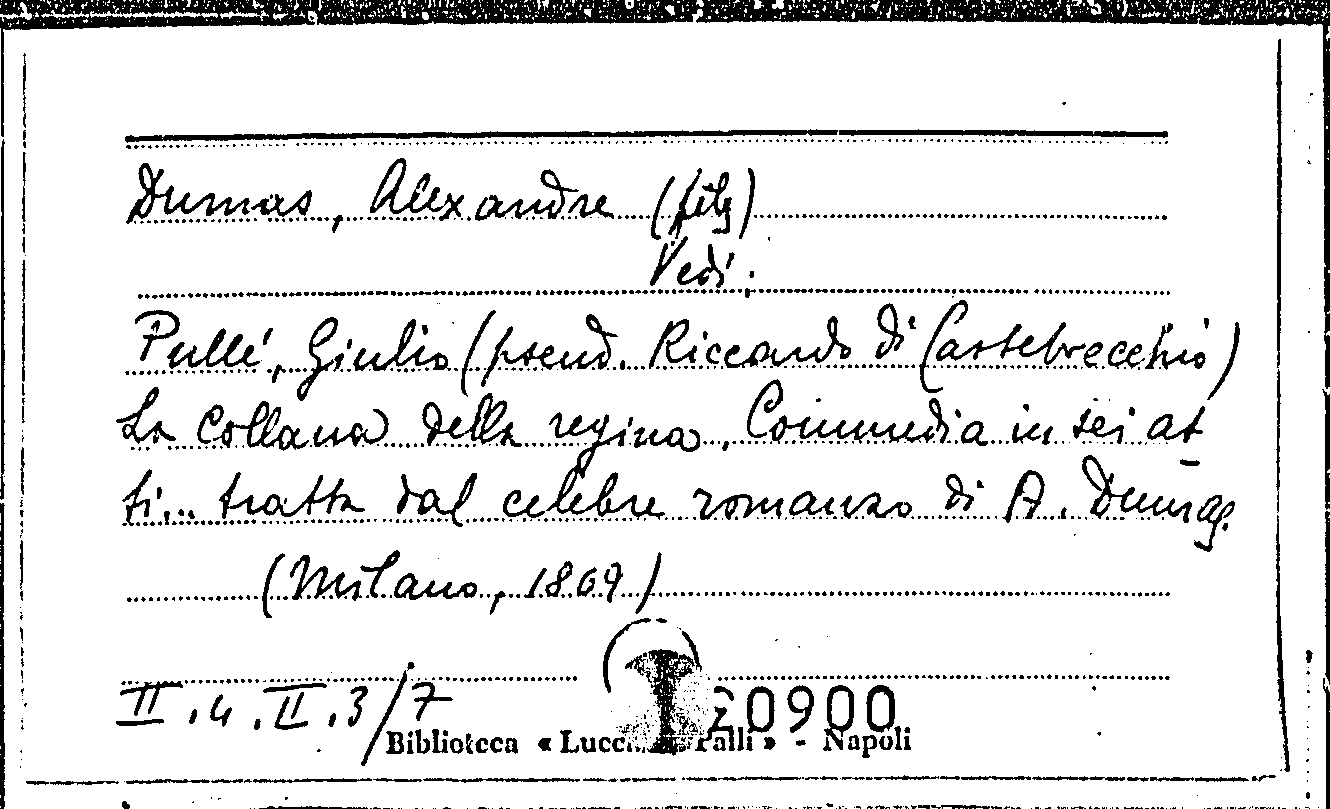 Dumas, Alexandre (fils)
Vedi:
Pullé, Giulio (pseud. Riccardo di Castelvecchio)
La collana della regina. Commedia in sei at
ti... tratta dal celebre romanzo di A. Dumas.
(Milano, 1869)
II.4.II.3/7
20900
Biblioteca « Palli » - Napoli